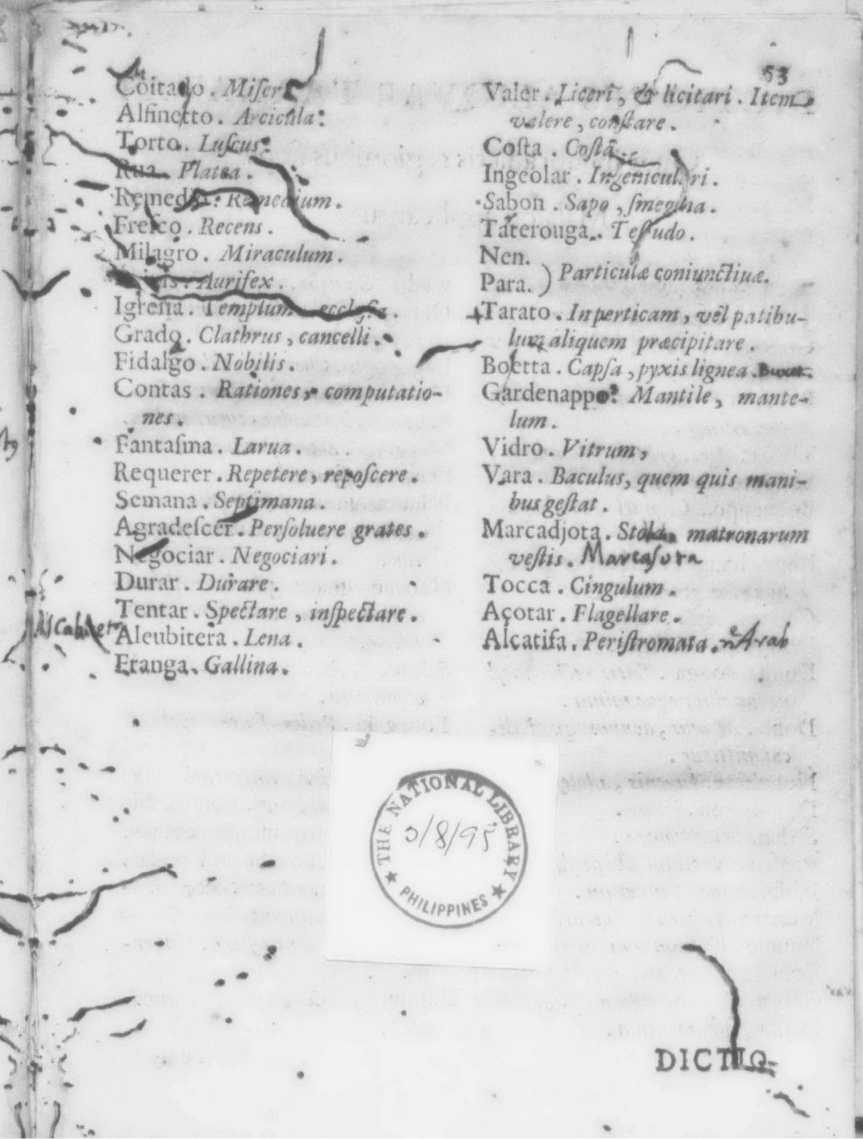 53
Coitado. Miser.
Alfinetto. Arcicula.
Torto. Luſcus.
Rua. Platea.
Remedio. Remedium.
Freſco. Recens.
Milagro. Miraculum.
Aurifex.
Igreſia. Templum ecclyſia.
Grado. Clathrus, cancelli.
Fidalgo. Nobilis.
Contas. Rationes, computatio-
nes.
Fantaſma. Larua.
Requerer. Repetere, repoſcere.
Semana. Septimana.
Agradeſcer. Perſoluere grates.
Negociar. Negociari.
Durar. Durare.
Tentar. Spectare, inſpectare.
Alcubitera. Lena.
Franga. Gallina.
Valer. Liceri, & licitari. Item
valere, conſtare.
Coſta. Coſta.
Ingeolar. Ingeniculari.
Sabon. Sapo, ſmegma.
Taterouga. Teſtudo.
Nen.
Para. ) Particulæ coniunctiuæ.
Tarato. In perticam, vel patibu-
lum aliquem præcipitare.
Boetta. Capſa, pyxis lignea.
Gardenappo. Mantile, mante-
lum.
Vidro. Vitrum,
Vara. Baculus, quem quis mani-
bus geſtat.
Marcadjota. Stola matronarum
veſtis. Marcaſota
Tocca. Cingulum.
Açotar. Flagellare.
Alcatifa. Periſtromata. Arab
THE NATIONAL LIBRARY
/8/95
PHILIPPINES
DICTIO-